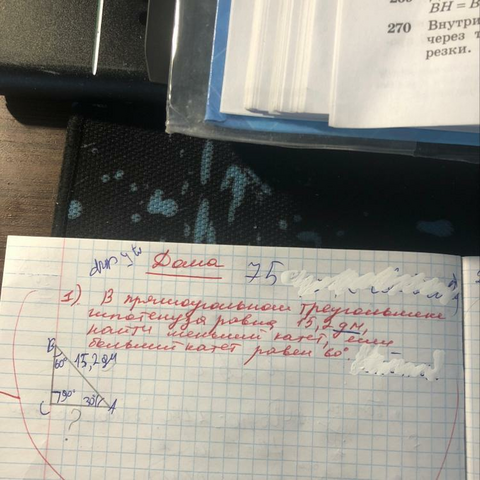 BH = B
270 Внутри
через т
резки.
Дома 75
1) В прямоугольном треугольнике
гипотенуза равна 15,2 дм,
найти меньший катет, если
больший катет равен 60°
B
60° 15,2 дм
90° 30°
C A
?